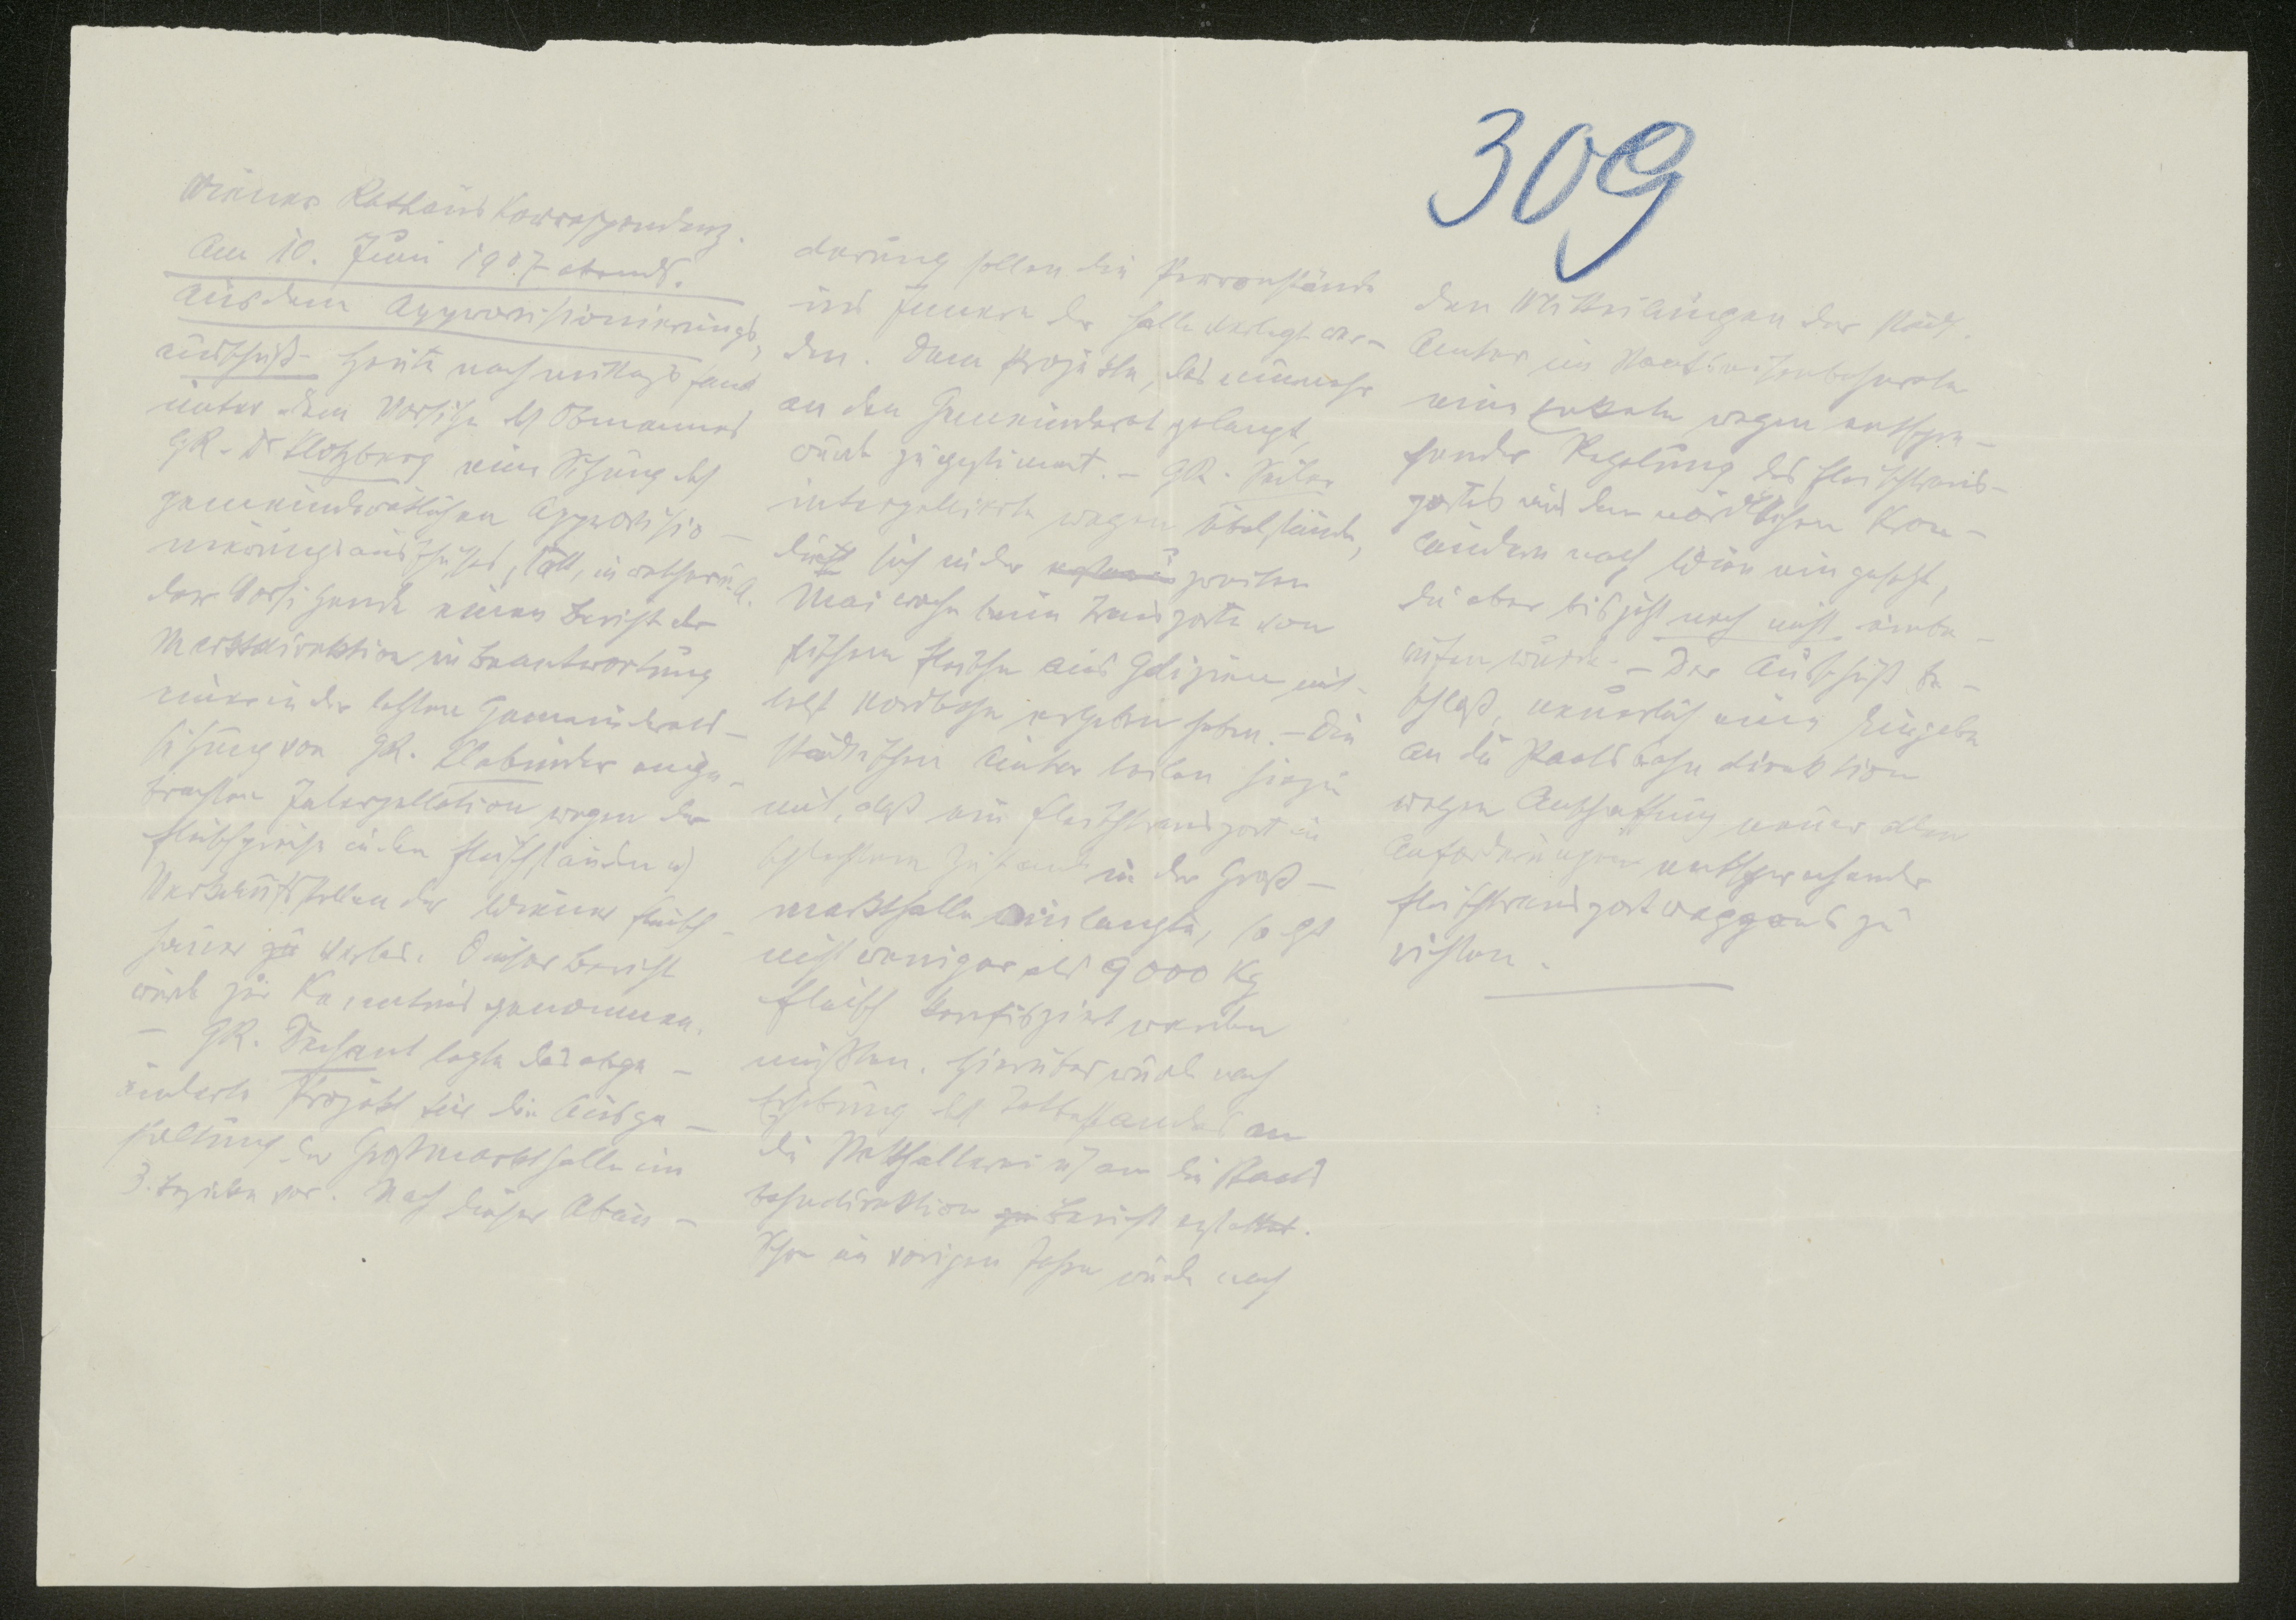 309
Wiener Rathaus Korrespondenz.
Am 10. Juni 1907 abends.
Aus dem Approvisionierungs-
ausschuß. Heute nachmittags fand
unter dem Vorsitze des Obmannes
GR. Dr Klotzberg eine Sitzung des
gemeinderätlichen Approvisio-
nierungsausschusses statt, in welcher u. A.
der Vorsitzende einen Bericht der
Marktdirektion in Beantwortung
einer in der letzten Gemeinderats-
sitzung von GR. Klebinder einge-
brachten Interpellation wegen der
Fleischpreise in den Fleischständen u
Verkaufsstellen der Wiener Fleisch-
hauer zu verlas. Dieser Bericht
wurde zur Kenntnis genommen.
- GR. Dechant legte das abge-
änderte Projekt für die Ausge-
staltung der Großmarkthalle im
3. Bezirke vor. Nach dieser Abän-
derung sollen die Perronstände
ins Innere der Halle verlegt wer-
den. Dem Projekte, das nunmehr
an den Gemeinderat gelangt,
wurde zugestimmt. - GR. Seiler
interpellierte wegen Übelstände,
die sich in der zweiten
Maiwoche beim Transporte von
frischem Fleische aus Galizien mit-
telst Nordbahn ergeben haben. - Die
städtischen Ämter teilen hiezu
mit, daß ein Fleischtransport in
schlechtem Zustande in der Groß-
markthalle einlangte, so daß
nicht weniger als 9000 Kg
Fleisch konfisziert werden
mußten. Hierüber wurde nach
Erhebung des Tatbestandes an
die Statthalterei u an die Staats
bahndirektion Bericht erstattet.
Schon im vorigen Jahre wurde nach
den Mitteilungen der städt.
Ämter im Staatseisenbahnrate
eine Enquete wegen entspre-
chender Regelung des Fleischtrans-
portes aus den nördlichen Kron-
ländern nach Wien eingesetzt,
die aber bis jetzt noch nicht einbe-
rufen wurde. - Der Ausschuß be-
schloß, neuerlich eine Eingabe
an die Staatsbahndirektion
wegen Anschaffung neuer allen
Anforderungen entsprechender
Fleischtransportwaggons zu
richten.